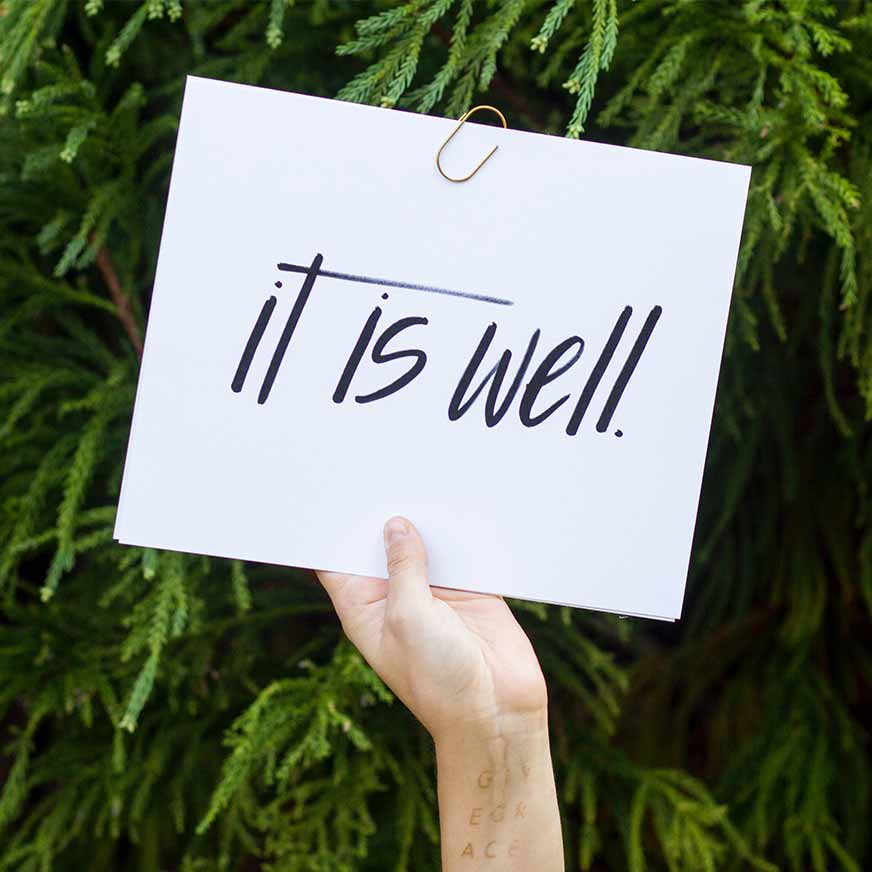 it is well.
G I V
E G R
A C E